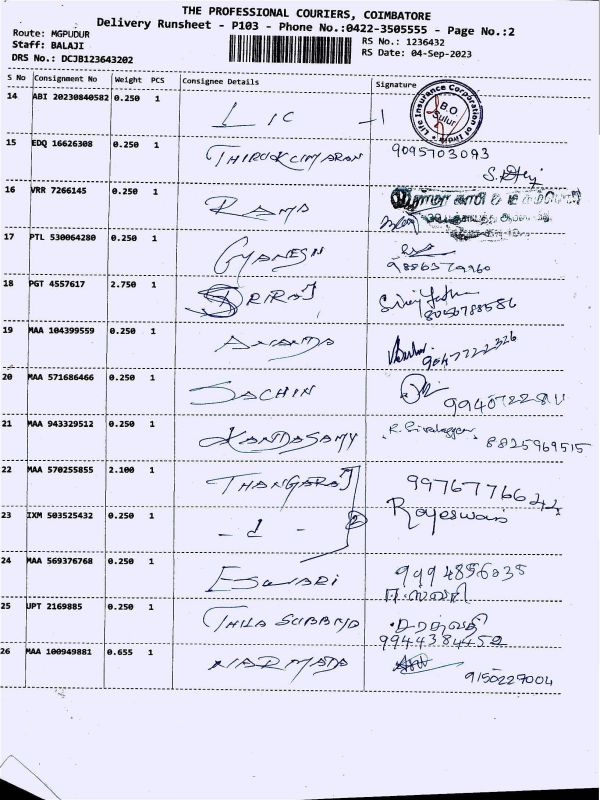 THE PROFESSIONAL COURIERS, COIMBATORE
Delivery Runsheet - P103 - Phone No.:0422-3505555 - Page No.:2
Route: MGPUDUR
Staff: BALAJI
DRS No.: DCJB123643202
RS No.: 1236432
RS Date: 04-Sep-2023
S No Consignment No Weight PCS Consignee Details Signature
14 ABI 20230840582 0.250 1 LIC
Life Insurance Corporation of India
B.O
Sulur
15 EDQ 16626308 0.250 1 THIRUKCUMARAN 9095703093
16 VRR 7266145 0.250 1 RAMA
17 PTL 530064280 0.250 1 GYANESH 9886379960
18 PGT 4557617 2.750 1 SRIRAJ 8056788586
19 MAA 104399559 0.250 1 ANANDA 9047722326
20 MAA 571686466 0.250 1 SACHIN
21 MAA 943329512 0.250 1 KANDASAMY 8825969515
22 MAA 570255855 2.100 1 THANGARAJ 9976777664
23 IXM 503525432 0.250 1 - d - 2 Rajeswari
24 MAA 569376768 0.250 1 ESWARI 9994856035
25 UPT 2169885 0.250 1 THILA SUBANJA 9944384452
26 MAA 100949881 0.655 1 NARMADA 9150229004